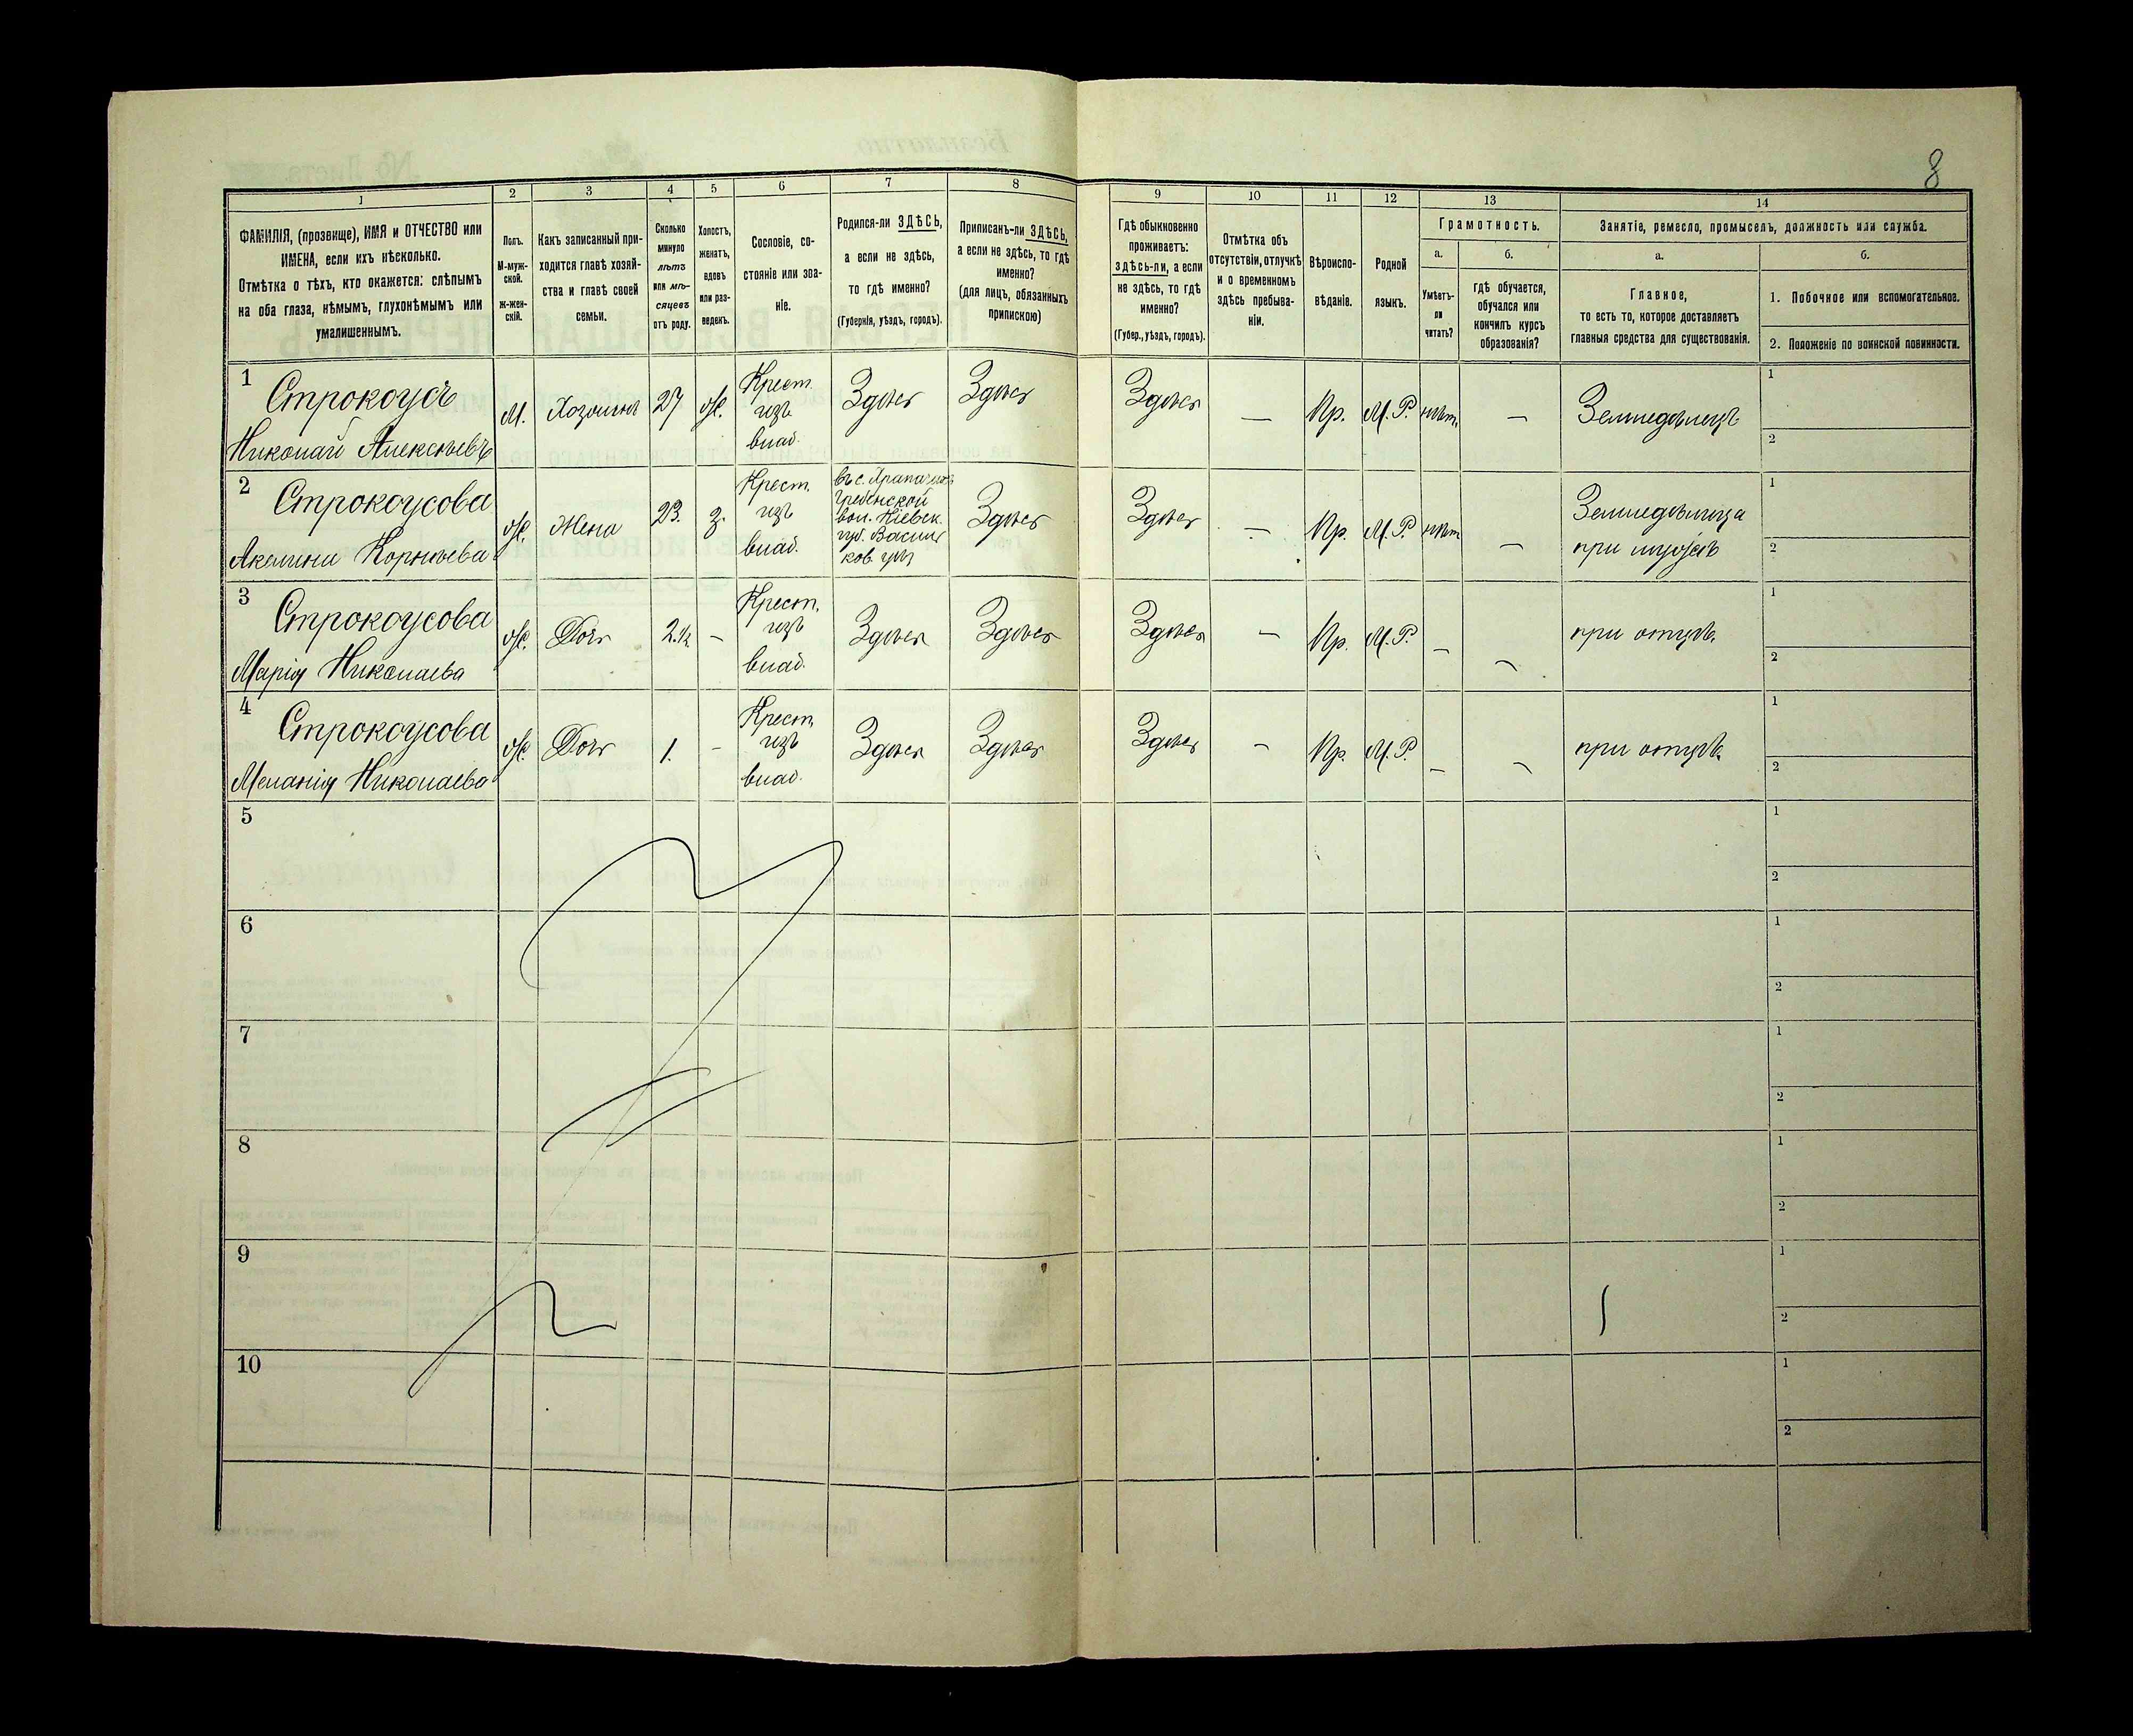 8
1 2 3 4 5 6 7 8 9 10 11 12 13 14
ФАМИЛІЯ, (прозвище), ИМЯ и ОТЧЕСТВО или
ИМЕНА, если ихъ нѣсколько.
Отмѣтка о тѣхъ, кто окажется: слѣпымъ
на оба глаза, нѣмымъ, глухонѣмымъ или
умалишеннымъ.
Полъ.
М-муж-
ской.
ж-жен-
скій.
Какъ записанный при-
ходится главѣ хозяй-
ства и главѣ своей
семьи.
Сколько
минуло
лѣтъ
или мѣ-
сяцевъ
отъ роду.
Холостъ,
женатъ,
вдовъ
или раз-
веденъ.
Сословіе, со-
стояніе или зва-
ніе.
Родился-ли ЗДѢСЬ,
а если не здѣсь,
то гдѣ именно?
(Губернія, уѣздъ, городъ).
Приписанъ-ли ЗДѢСЬ,
а если не здѣсь, то гдѣ
именно?
(для лицъ, обязанныхъ
припискою)
Гдѣ обыкновенно
проживаетъ:
здѣсь-ли, а если
не здѣсь, то гдѣ
именно?
(Губер., уѣздъ, городъ).
Отмѣтка объ
отсутствіи, отлучкѣ
и о временномъ
здѣсь пребыва-
ніи.
Вѣроиспо-
вѣданіе.
Родной
языкъ.
Грамотность.
а.
Умѣетъ-
ли
читать?
б.
гдѣ обучается,
обучался или
кончилъ курсъ
образованія?
Занятіе, ремесло, промыселъ, должность или служба.
а.
Главное,
то есть то, которое доставляетъ
главныя средства для существованія.
б.
1. Побочное или вспомогательное.
2. Положеніе по воинской повинности.
1
Строкоусъ
Николай Алексѣевъ
М.
Хозяинъ
27
ж.
Крест.
изъ
влад.
Здѣсь
Здѣсь
Здѣсь
—
Пр.
М. Р.
нѣт.
—
Земледѣлецъ
1
2
2
Строкоусова
Акелина Корнѣева
ж.
Жена
23.
з.
Крест.
изъ
влад.
Гребенской
вол. Кіевск.
губ. Васил
ков. уѣз
Здѣсь
Здѣсь
—
Пр.
М. Р.
нѣт
—
Земледѣлица
при мужѣ
1
2
3
Строкоусова
Марія Николаева
ж.
Дочь
2.½
—
Крест.
изъ
влад.
Здѣсь
Здѣсь
Здѣсь
—
Пр.
М. Р.
—
—
при отцѣ.
1
2
4
Строкоусова
Меланія Николаева
ж.
Дочь
1.
—
Крест.
изъ
влад.
Здѣсь
Здѣсь
Здѣсь
—
Пр.
М. Р.
—
—
при отцѣ.
1
2
5
1
2
6
1
2
7
1
2
8
1
2
9
1
2
10
1
2